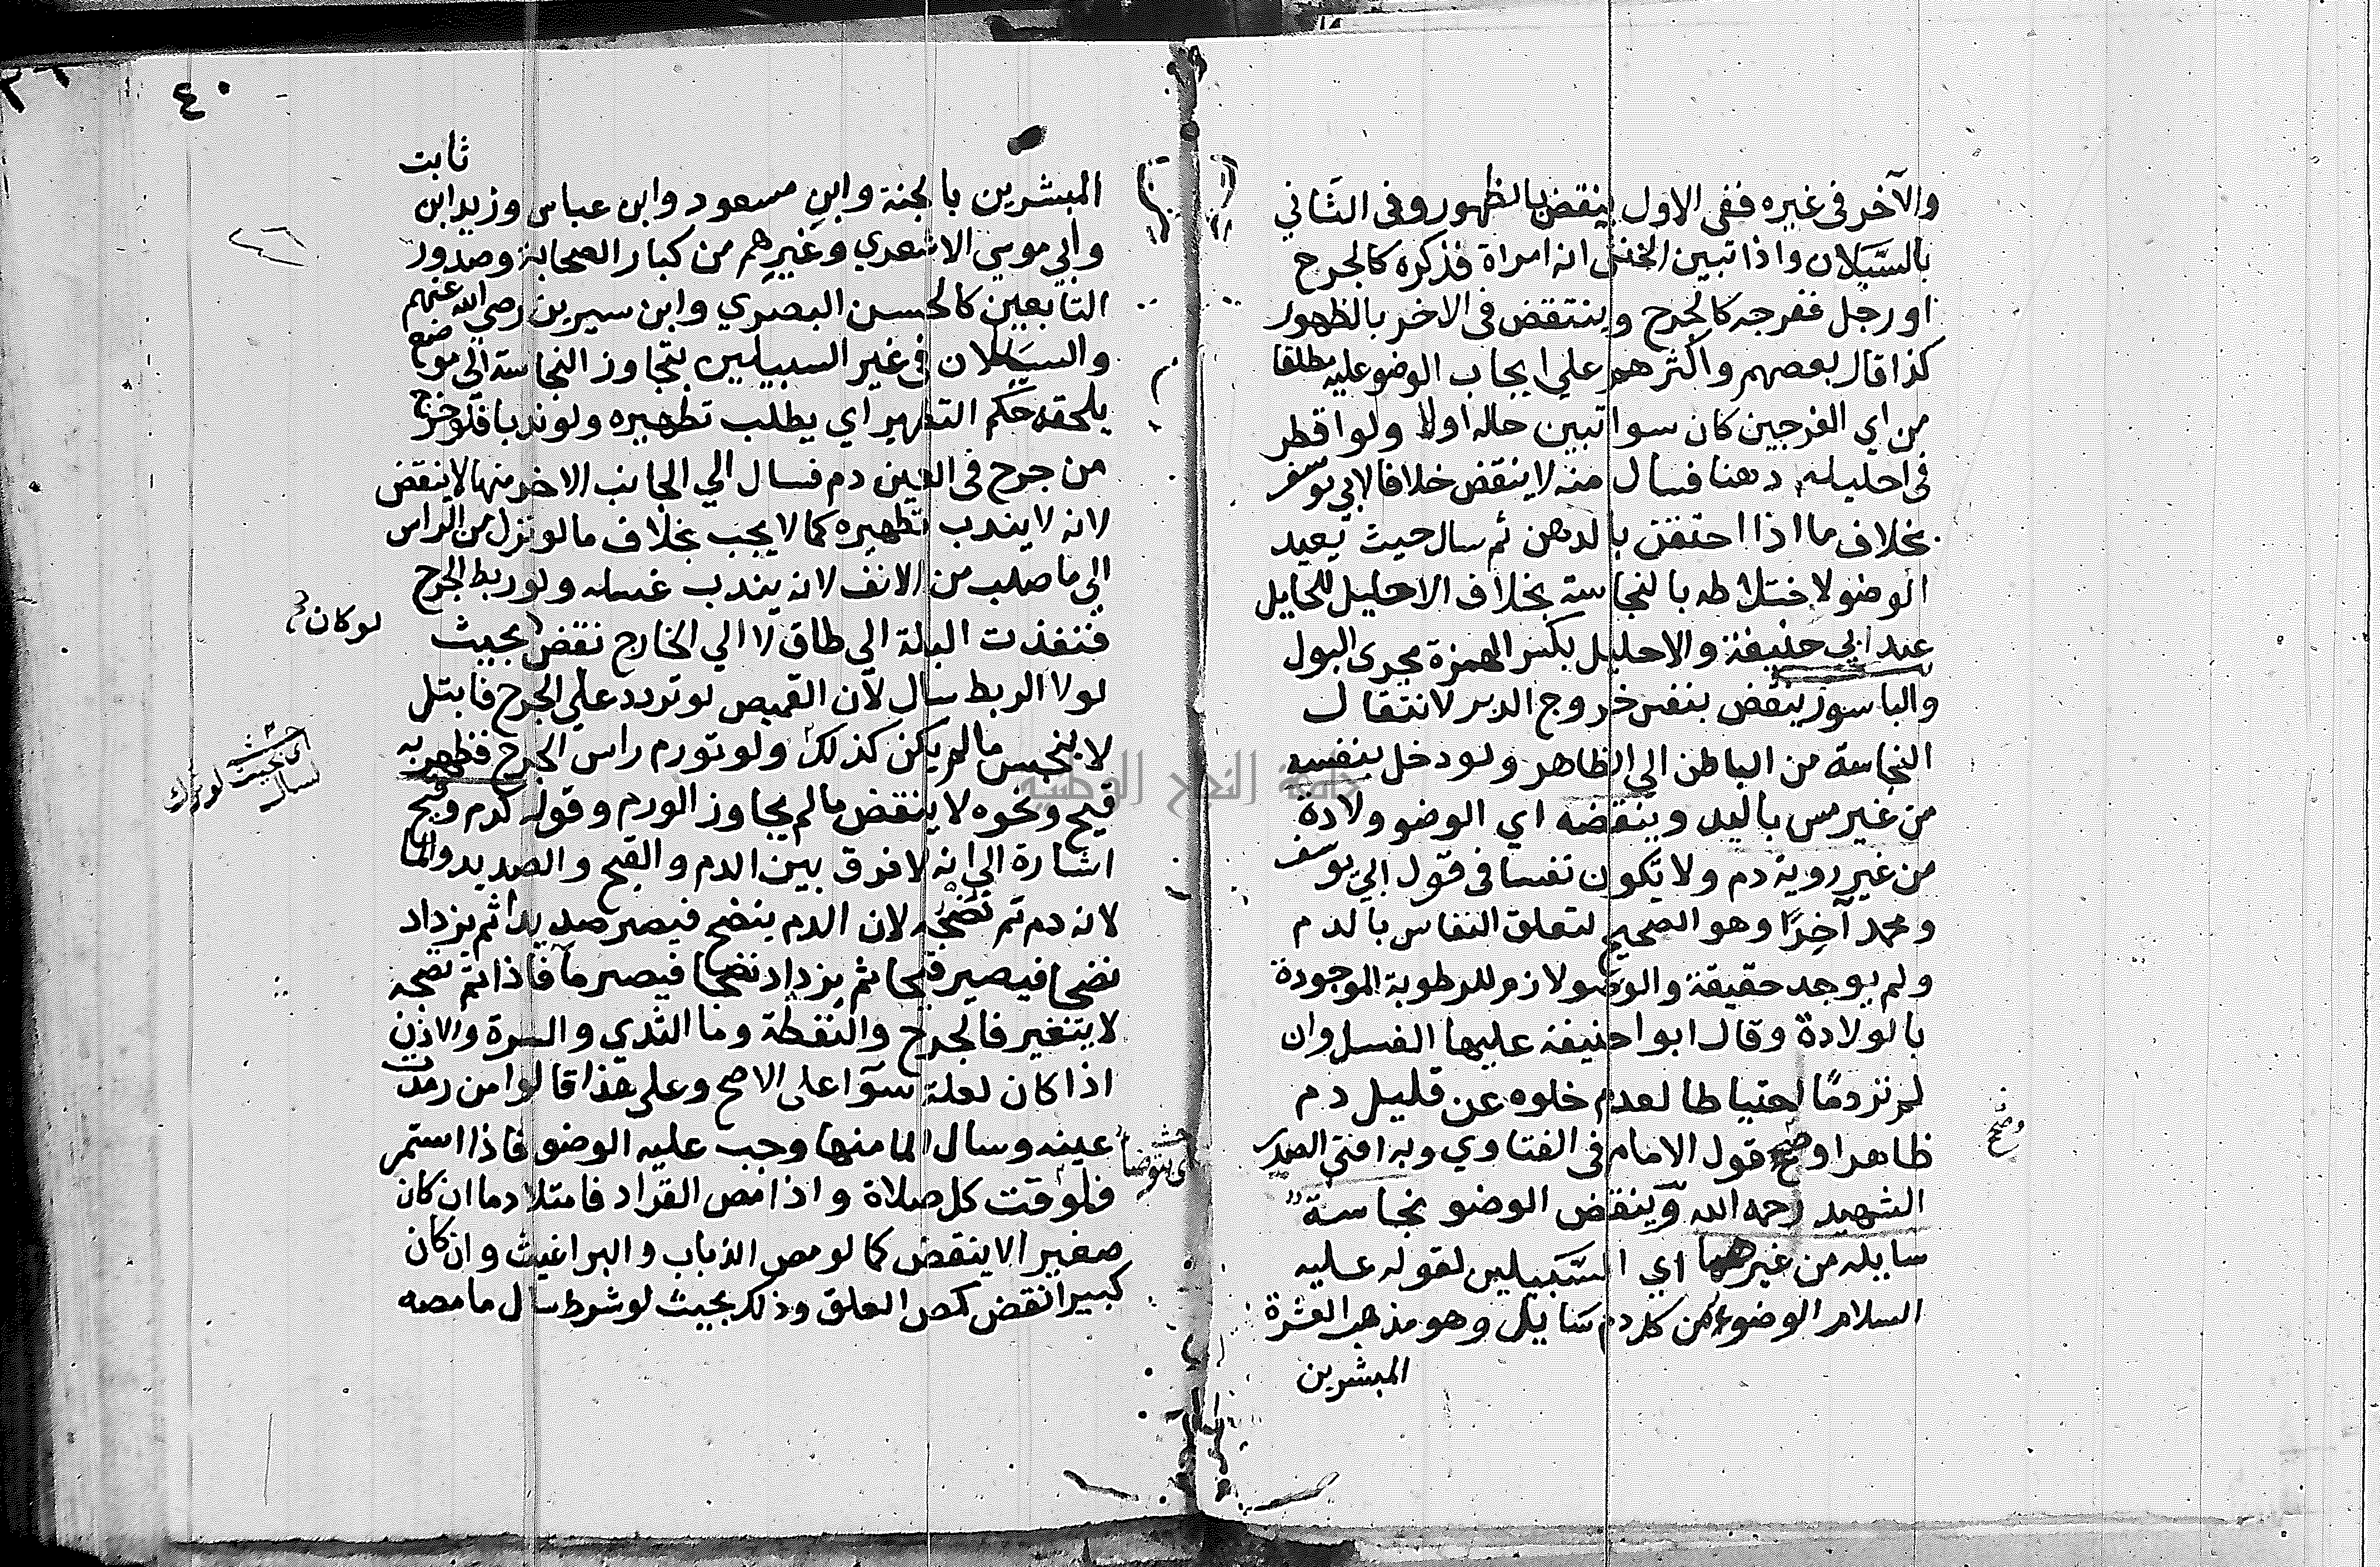 والآخر في غيره ففي الاول ينقض بالظهور وفي الثاني
بالسَّيَلان واذا تبين الخنثى انه امراة فذكره كالجرح
او رجل ففرجه كالجرح وينتقض في الاخر بالظهور
كذا قال بعضهم واكثرهم علي ايجاب الوضو عليه مطلقا
من اي الفرجين كان سوا تبين حاله اولا ولو اقطر
في احليله دهنا فسال منه لا ينقض خلافا لابي يوسف
بخلاف ما اذا احتقن بالدهن ثم سال حيث يعيد
الوضو لاختلاطه بالنجاسة بخلاف الاحليل للحايل
عند ابي حنيفة والاحليل بكسر الهمزة مجرى البول
والباسور ينقض بنفس خروج الدبر لانتقال
النجاسة من الباطن الي الظاهر ولو دخل بنفسه
من غير مس باليد وينقضه اي الوضو ولادة
من غير روية دم ولا تكون نفسا في قول ابي يوسف
ومحمد آخِرًا وهو الصحيح لتعلق النفاس بالدم
ولم يوجد حقيقة والوضو لازم للرطوبة الموجودة
بالولادة وقال ابو احنيفة عليها الغسل وان
لم تر دمًا احتياطا لعدم خلوه عن قليل دم
ظاهرا وصحح قول الامام في الفتاوي وبه افتي الصدر
وصُحح
الشهيد رحمه الله وينقض الوضو نجاسة
سايله من غيرهما اي السَّبيلين لقوله عليه
السلام الوضوء من كل دم سَايل وهو مذهب العشرة
المبشرين
٤٠
ثابت
المبشرين بالجنة وابن مسعود وابن عباس وزيد ابن
وابي موسي الاشعري وغيرهم من كبار الصحابة وصدور
التابعين كالحسن البصري وابن سيرين رضي الله عنهم
والسيَلان في غير السبيلين بتجاوز النجاسة الي موضع
يلحقه حكم التطهير اي يطلب تطهيره ولو ندبا فلو خرج
من جرح في العين دم فسال الي الجانب الاخر منها لا ينقض
لانه لا يندب تطهيره كما لا يجب بخلاف ما لو نزل من الراس
الي ما صلب من الانف لانه يندب غسله ولو ربط الجرح
فنفذت البلة الي طاق لا الي الخارج نقض بحيث
لو كان
لولا الربط سال لان القميص لو تردد علي الجرح فابتل
لا ينجس ما لم يكن كذلك ولو تورم راس الجرح فظهر به
بحيث لو ترك
لسال
قيح ونحوه لا ينقض ما لم يجاوز الورم وقوله كدم وقيح
اشارة الي انه لا فرق بين الدم والقيح والصديد والما
لانه دم تم نضجه لان الدم ينضج فيصير صديدا ثم يزداد
نضجا فيصير قيحا ثم يزداد نضجا فيصير مآ فاذا تم نضجه
لا يتغير فالجرح والنفطة وما الثدي والسرة والاذن
اذا كان لعلة سوآ على الاصح وعلى هذا قالوا من رمدت
عينه وسال الما منها وجب عليه الوضو فاذا استمر
يتوضا
فلوقت كل صلاة واذا مص القراد فامتلا دما ان كان
صغيرا لا ينقض كما لو مص الذباب والبراغيث وان كان
كبيرا نقض كمص العلق وذلك بحيث لو شرط سال ما مصه
جامعة النجاح الوطنية